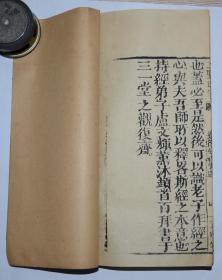 也蓋必至是然後可以識老子作經之
心與夫吾師所以釋畧斯經之本意也
持經弟子盧文頫薰沐頓首百拜書于
三一堂之觀復齋